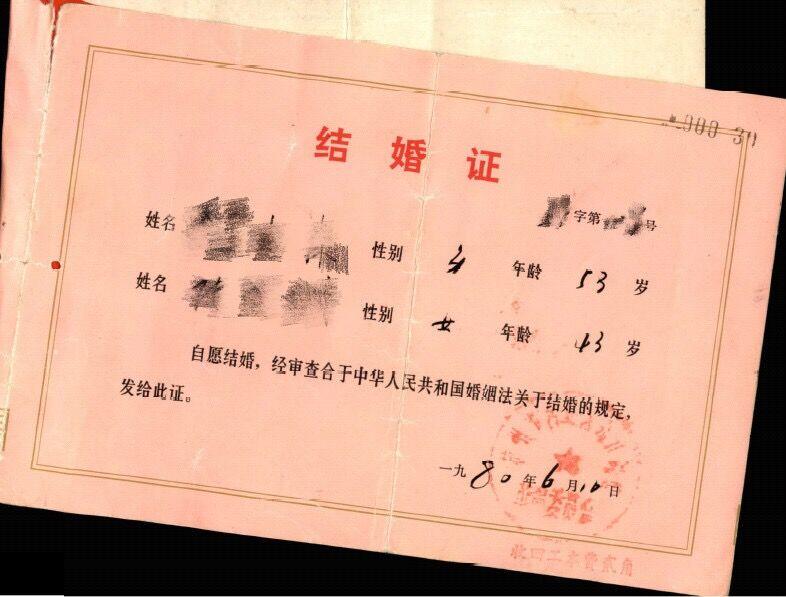 结婚证
字第 号
姓名 性别 男 年龄 53 岁
姓名 性别 女 年龄 43 岁
自愿结婚，经审查合于中华人民共和国婚姻法关于结婚的规定，
发给此证。
一九80年6月10日
收回工本费贰角